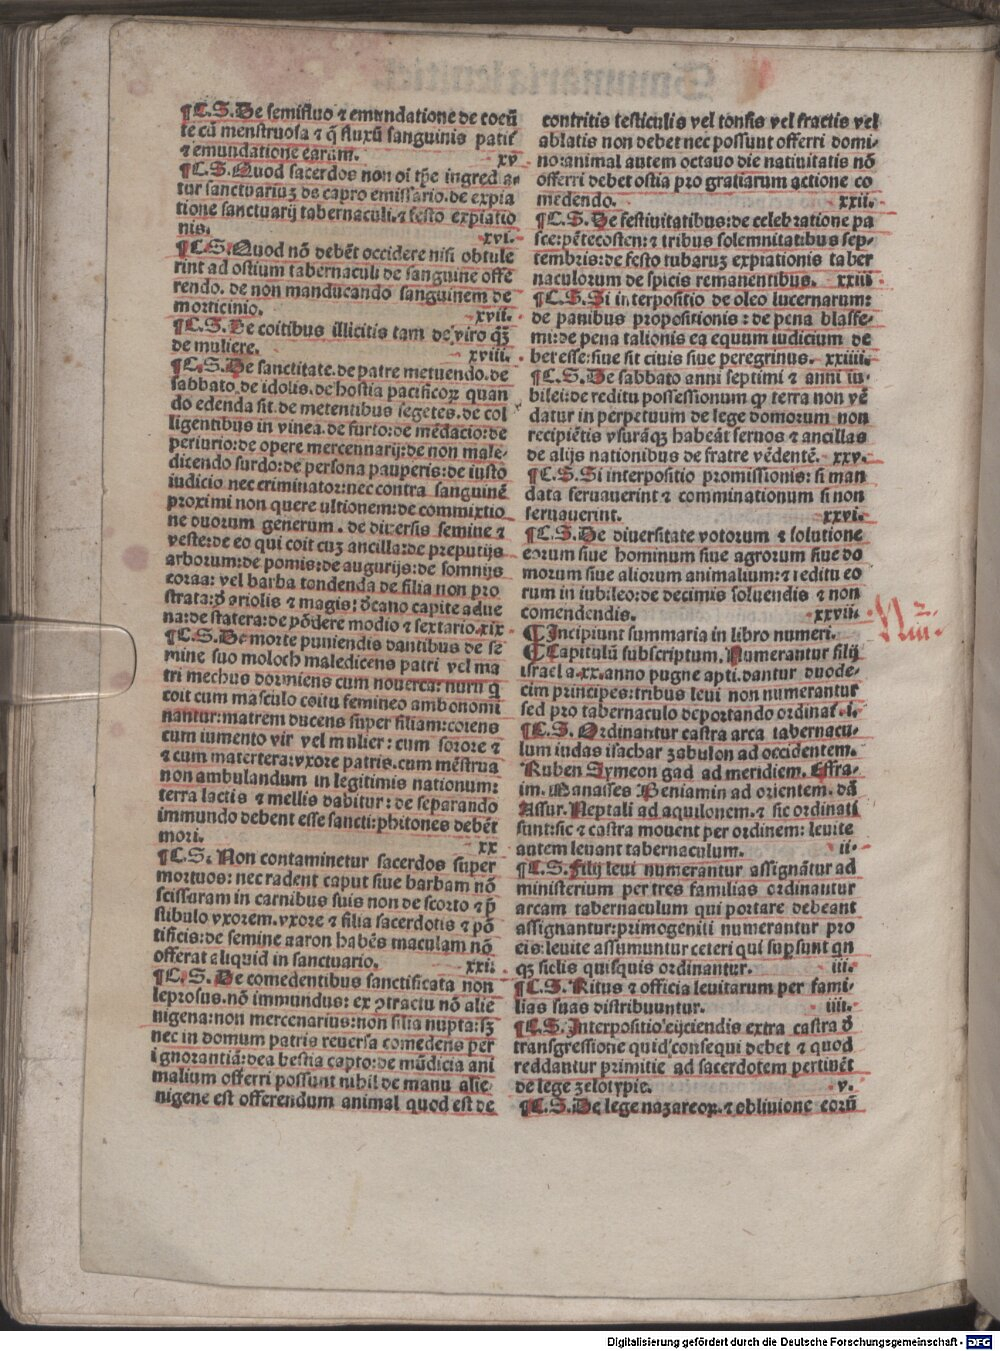 ¶C.S.De semifluo ⁊ emundatione de coeũ
te cũ menstruosa ⁊ q̃ fluxũ sanguinis patit᷑
⁊ emundatione earum. xv
¶C.S.Quod sacerdos non oĩ tpe ingredia-
tur sanctuariuꝫ de capro emissario.de expia
tione sanctuarij tabernaculi.⁊ festo expiatio
nis. xvi.
¶C.S.Quod nõ debẽt occidere nisi obtule
rint ad ostium tabernaculi de sanguine offe
rendo. de non manducando sanguinem de
morticinio. xvii.
¶C.S.De coitibus illicitis tam de viro q̃ꝫ
de muliere. xviii.
¶C.S.De sanctitate.de patre metuendo.de
sabbato.de idolis.de hostia pacificoꝝ quan
do edenda sit.de metentibus segetes.de col
ligentibus in vinea.de furto:de mẽdacio:de
periurio:de opere mercennarij:de non male-
dicendo surdo:de persona pauperis:de iusto
iudicio nec criminator:nec contra sanguinẽ
proximi non quere ultionem:de commixtio
ne duorum generum.de diversis semine ⁊
veste:de eo qui coit cuꝫ ancilla:de preputijs
arborum:de pomis:de augurijs:de somnijs
coraa: vel barba tondenda de filia non pro
strata:đ ariolis ⁊ magis:đcano capite adue
na:de statera:de põdere modio ⁊ sextario.xix
¶C.S.De morte puniendis dantibus de se
mine suo moloch maledicens patri vel ma
tri mechus dormiens cum nouerca: nuru q̃
coit cum masculo coitu femineo ambo nomi
nantur:matrem ducens super filiam:coiens
cum iumento vir vel mulier: cum sorore ⁊
⁊ cum matertera:vxore patris.cum mẽstrua
non ambulandum in legitimis nationum:
terra lactis ⁊ mellis dabitur: de separando
immundo debent esse sancti:phitones debẽt
mori. xx
¶C.S. Non contaminetur sacerdos super
mortuos: nec radent caput siue barbam nõ
scissuram in carnibus suis non de scorto ⁊ p̃
stibulo vxorem.vxore ⁊ filia sacerdotis ⁊ põ
tificis:de semine aaron habẽs maculam nõ
offerat aliquid in sanctuario. xxi.
¶C.S. De comedentibus sanctificata non
leprosus.nõ immundus: ex ꝯtractu nõ alie
nigena:non mercenarius:non filia nupta:sꝫ
nec in domum patris reuersa comedens per
ignorantiã:dea bestia capto:de mũdicia ani
malium offerri possunt nihil de manu alie-
nigene est offerendum animal quod est de
contritis testiculis vel tonsis vel fractis vel
ablatis non debet nec possunt offerri domi-
no:animal autem octauo die natiuitatis nõ
offerri debet ostia pro gratiarum actione co
medendo. xxii.
¶C.S. De festiuitatibus:de celebratione pa
sce:pẽtecosten:⁊ tribus solemnitatibus sep-
tembris:de festo tubaruꝫ expiationis taber
naculorum de spicis remanentibus. xxiii
¶C.S. Si interpositio de oleo lucernarum:
de panibus propositionis: de pena blasfe-
mi:de pena talionis eq equum iudicium de
bet esse:siue sit ciuis siue peregrinus. xxiiii.
¶C.S.De sabbato anni septimi ⁊ anni iu-
bilei:de reditu possessionum qꝫ terra non vẽ
datur in perpetuum de lege domorum non
recipiẽtis vsurãqꝫ habeãt seruos ⁊ ancillas
de alijs nationibus de fratre vẽdentẽ. xxv.
¶C.S.Si interpositio promissionis: si man
data seruauerint ⁊ comminationum si non
seruauerint. xxvi.
¶C.S.De diuersitate votorum ⁊ solutione
eorum siue hominum siue agrorum siue do
morum siue aliorum animalium:⁊ reditu eo
rum in iubileo:de decimis soluendis ⁊ non
comendendis. xxvii.
¶Incipiunt summaria in libro numeri.
¶Capitulũ subscriptum. Numerantur filij
israel a.xx.anno pugne apti.dantur duode-
cim principes:tribus leui non numerantur
sed pro tabernaculo deportando ordinat᷑.i.
¶C.S. Ordinantur castra arca tabernacu-
lum iudas isachar zabulon ad occidentem.
Ruben Symeon gad ad meridiem. Effra-
im. Manasses Beniamin ad orientem. dã
Assur. Neptali ad aquilonem.⁊ sic ordinati
sunt:sic ⁊ castra mouent per ordinem: leuite
autem leuant tabernaculum. ii.
¶C.S.Filij leui numerantur assignãtur ad
ministerium per tres familias ordinantur
arcam tabernaculum qui portare debeant
assignantur:primogeniti numerantur pro
eis:leuite assumuntur ceteri qui supsunt qn
qꝫ siclis quisquis ordinantur. iii.
¶C.S. Ritus ⁊ officia leuitarum per fami-
lias suas distribuuntur. iiii.
¶C.S.Interpositio eijciendis extra castra đ
transgressione quid consequi debet ⁊ quod
reddantur primitie ad sacerdotem pertinẽt
de lege zelotypie. v.
¶C.S.De lege nazareoꝝ.⁊ obliuione eorũ
Digitalisierung gefördert durch die Deutsche Forschungsgemeinschaft - DFG